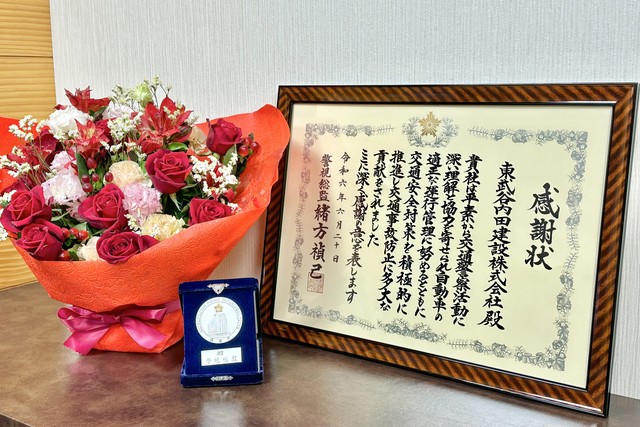 感謝状
東武谷内田建設株式会社 殿
貴社は平素から交通警察活動に
深い理解と協力を寄せられ自動車の
適正な運行管理に努めるとともに
交通安全対策を積極的に
推進し交通事故防止に多大な
貢献をされました
ここに深く感謝の意を表します
令和六年六月二十日
警視総監 緒方禎己
警視総監